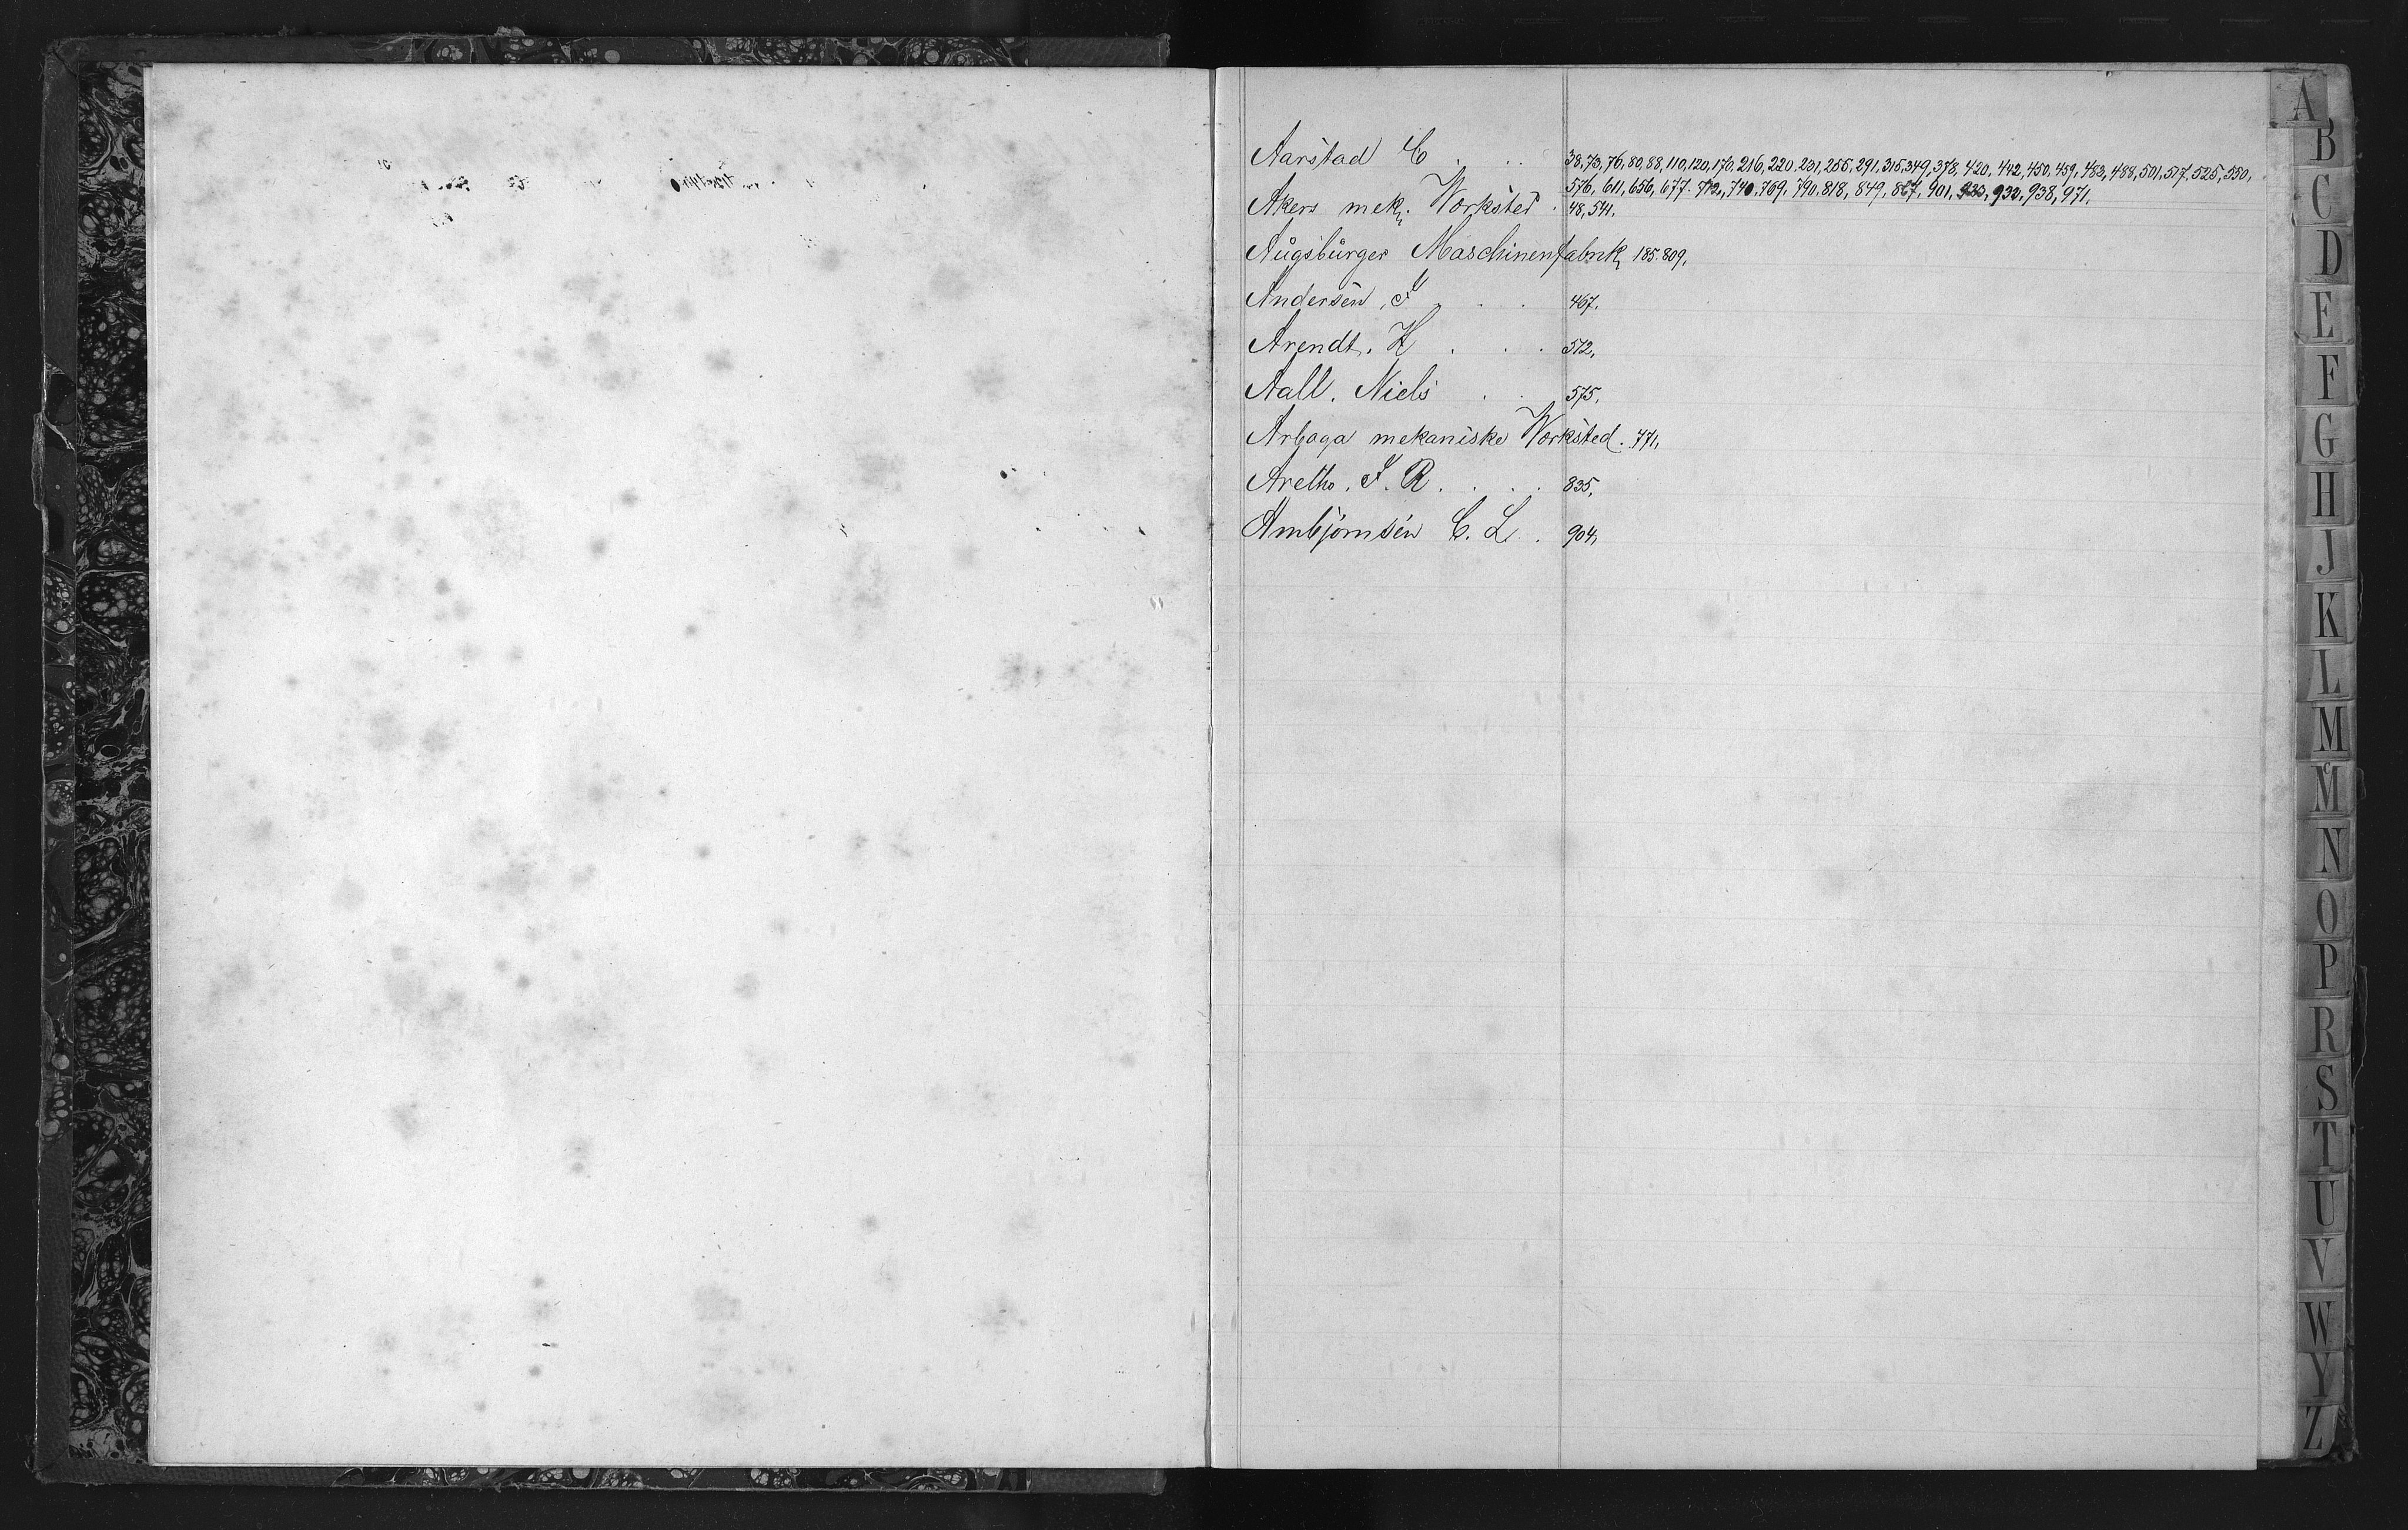 Aarstad C . . . 38, 73, 76, 80, 88, 110, 120, 170, 216, 220, 231, 255, 291, 315, 349, 378, 420, 442, 450, 459, 483, 488, 501, 517, 525, 550,
576, 611, 656, 677. 712, 740, 769, 790, 818, 849, 867, 901, 930, 938, 971.
Akers mek. Værksted . 48, 541.
Augsburger Maschinenfabrik 185. 809.
Andersen, J . . . 467.
Arendt. H . . . 512.
Aall. Niels . . 575.
Arboga mekaniske Værksted. 771.
Aretho. J. R. . . . 835.
Ambjörnsen C. L. . 904.
A
B
C
D
E
F
G
H
J
K
L
M
Mc
N
O
P
R
S
T
U
V
W
Y
Z